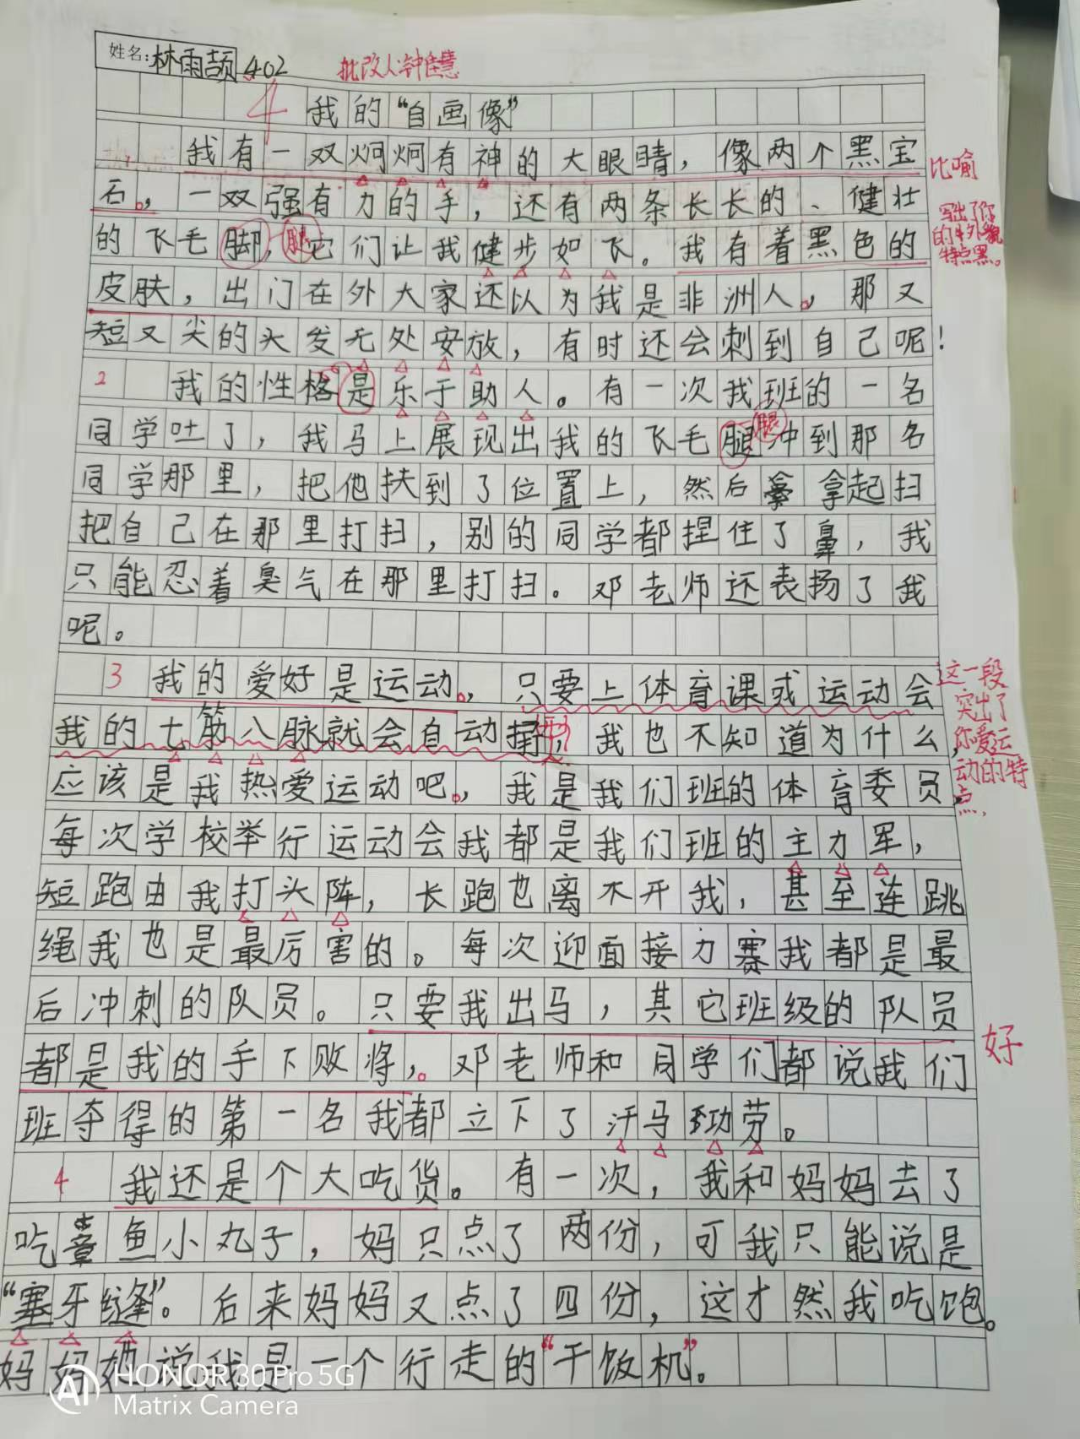 姓名:林雨颉 402
批改人:钟佳慧
4 我的“自画像”
我有一双炯炯有神的大眼睛，像两个黑宝
比喻
石。，一双强有力的手，还有两条长长的、健壮
写出了你的外貌特点黑。
的飞毛脚，腿它们让我健步如飞。我有着黑色的
皮肤，出门在外大家还以为我是非洲人。，那又
短又尖的头发无处安放，有时还会刺到自己呢！
2 我的性格是乐于助人。有一次我班的一名
同学吐了，我马上展现出我的飞毛腿腿冲到那名
同学那里，把他扶到了位置上，然后拿起扫
把自己在那里打扫，别的同学都捏住了鼻，我
只能忍着臭气在那里打扫。邓老师还表扬了我
呢。
3 我的爱好是运动。，只要上体育课或运动会
这一段突出了你爱运动的特点，
我的七筋八脉就会自动，我也不知道为什么，
应该是我热爱运动吧。，我是我们班的体育委员，
每次学校举行运动会我都是我们班的主力军，
短跑由我打头阵，长跑也离不开我，甚至连跳
绳我也是最厉害的。每次迎面接力赛我都是最
后冲刺的队员。只要我出马，其它班级的队员
好
都是我的手下败将，。邓老师和同学们都说我们
班夺得的第一名我都立下了汗马功劳。
4 我还是个大吃货。有一次，我和妈妈去了
吃章鱼小丸子，妈只点了两份，可我只能说是
“塞牙缝”。后来妈妈又点了四份，这才然我吃饱。
妈妈她说我是一个行走的“干饭机”。
AI HONOR 30 Pro 5G
Matrix Camera